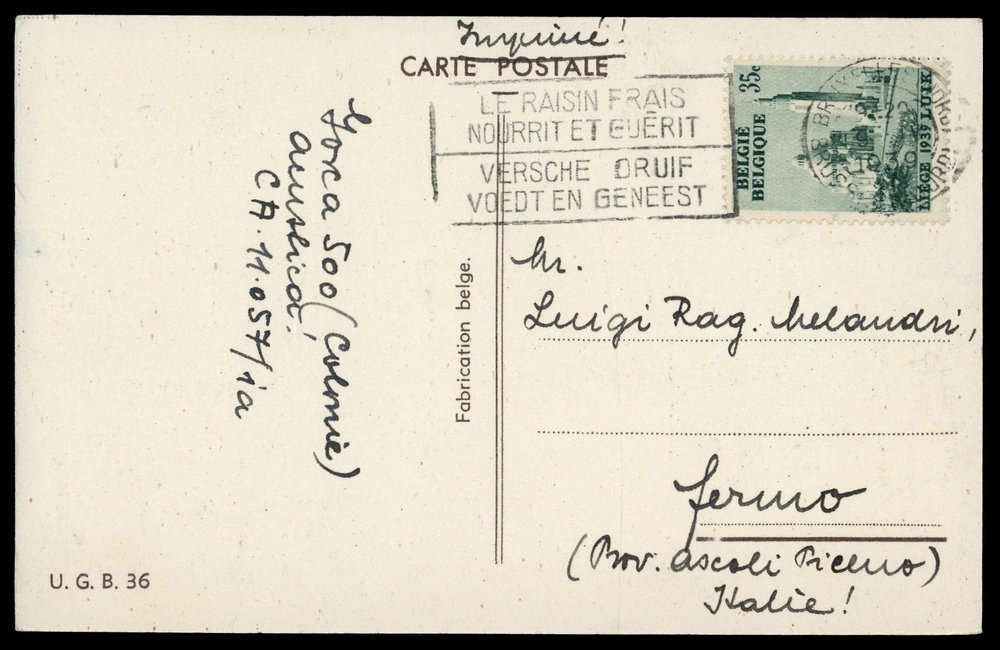 Imprimé!
CARTE POSTALE
LE RAISIN FRAIS
NOURRIT ET GUÉRIT
VERSCHE DRUIF
VOEDT EN GENEEST
35c
BELGIË
BELGIQUE
LIÈGE 1939 LUIK
Yorca 500 (Colonie)
austica.
CA. 11.057/ia
Fabrication belge.
Mr.
Luigi Rag. Melandri,
Fermo
(Prov. Ascoli Piceno)
Italie!
U. G. B. 36